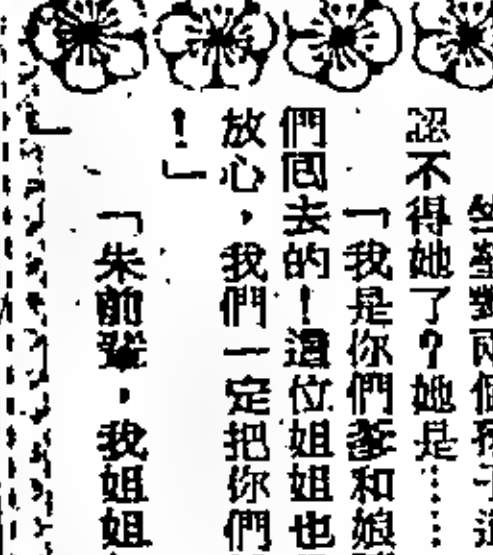 對兩個孩子
認不得她了?她是……
「我是你們爹和娘
們囘去的!這位姐姐也
放心,我們一定把你們
!」
「朱前輩,我姐姐
」